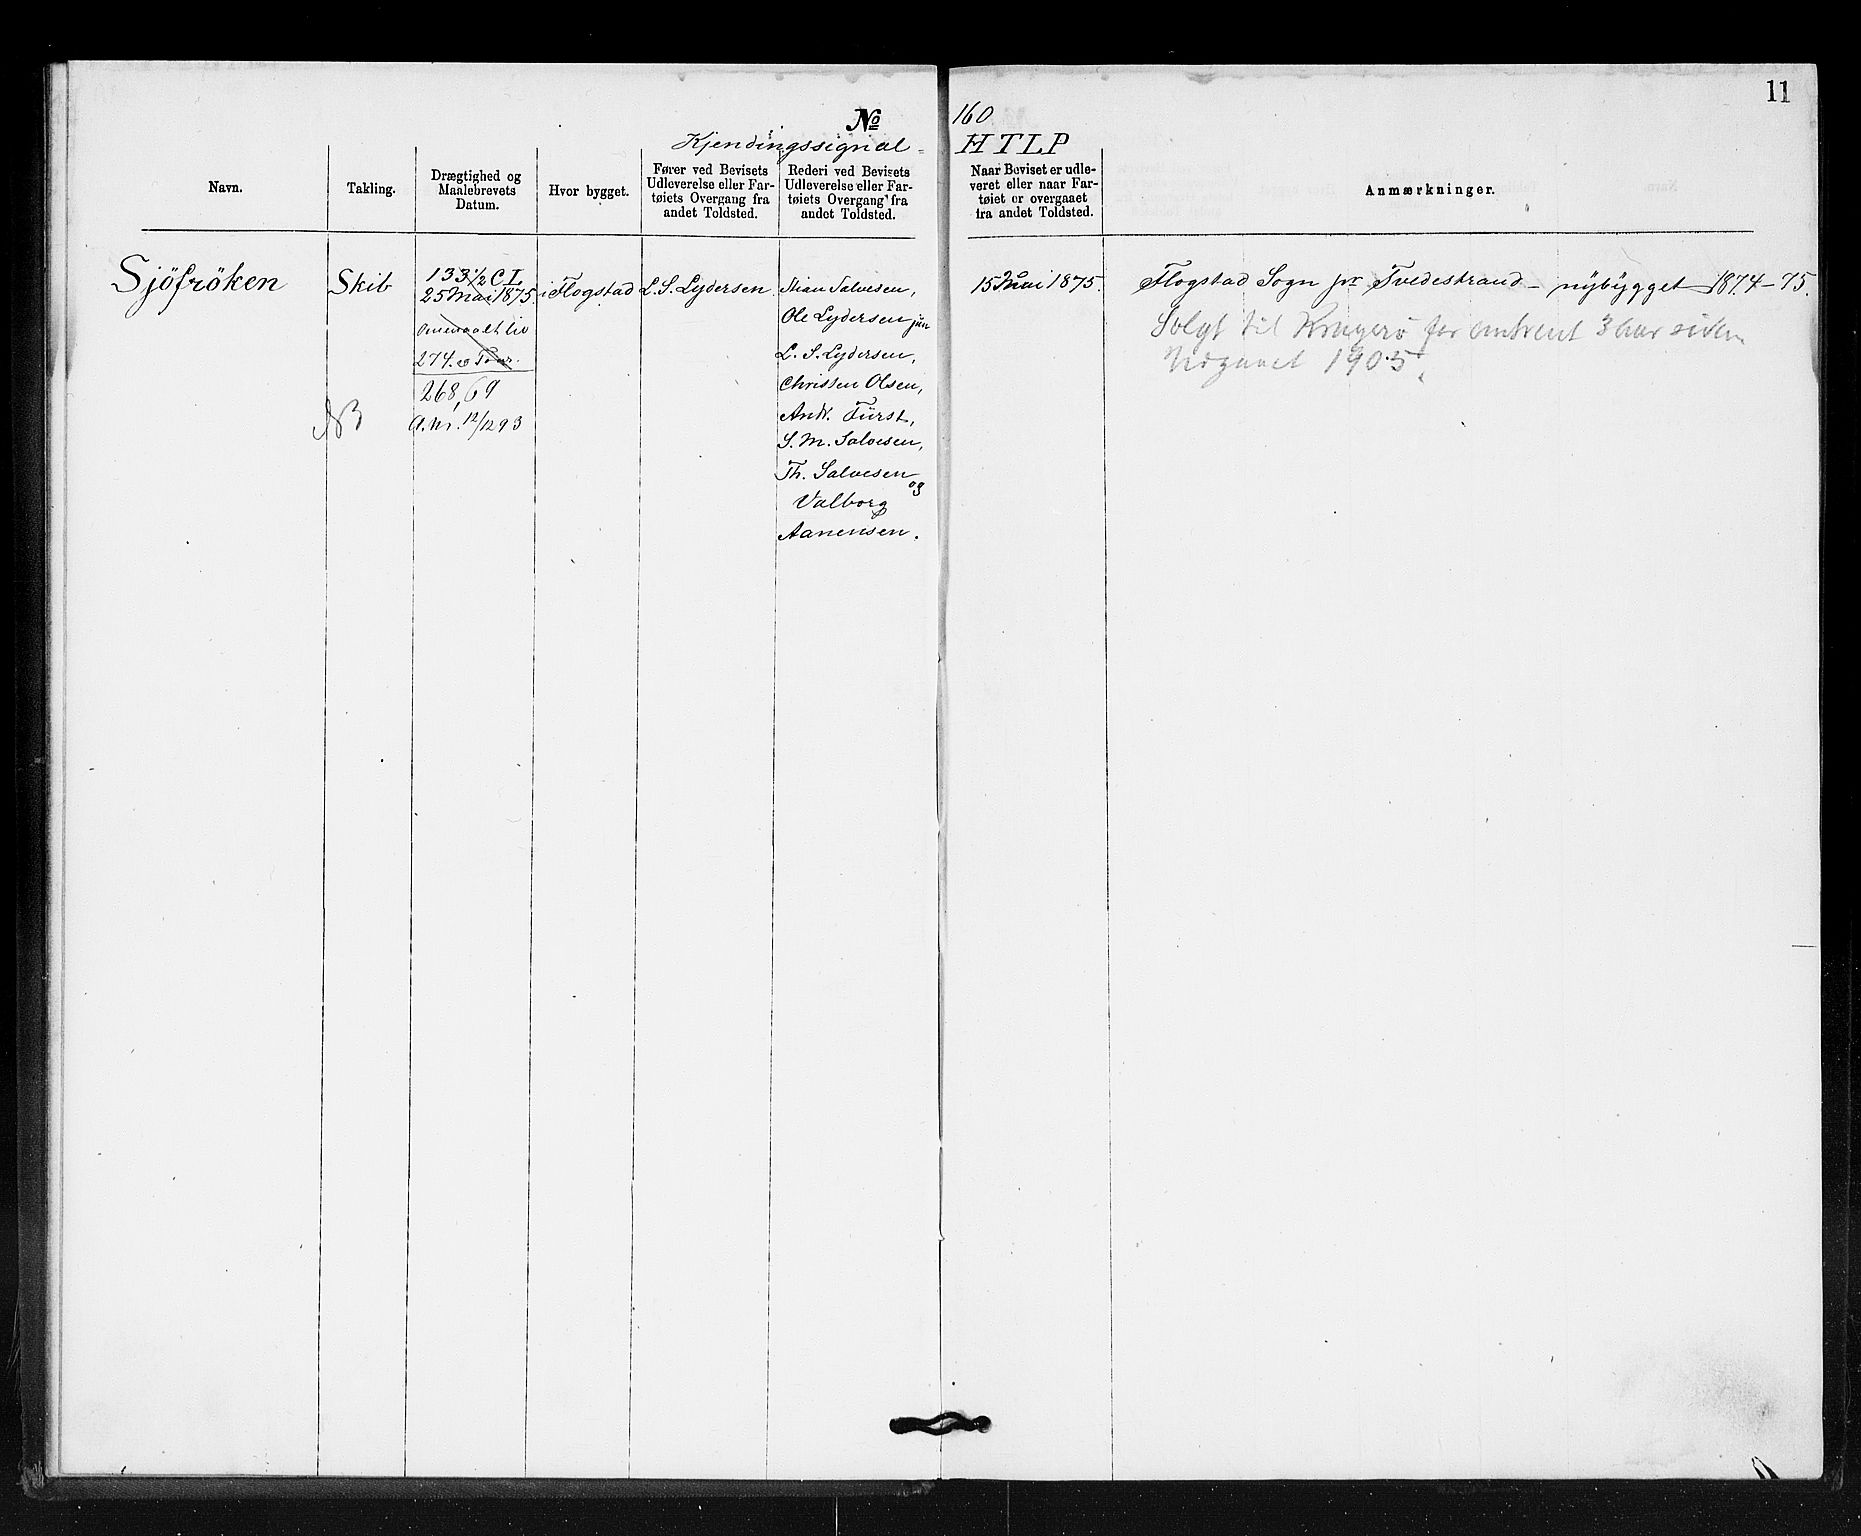 11
No 160
Kjendingssignal = HTLP
Navn.
Takling.
Drægtighed og
Maalebrevets
Datum.
Hvor bygget.
Fører ved Bevisets
Udleverelse eller Far-
tøiets Overgang fra
andet Toldsted.
Rederi ved Bevisets
Udleverelse eller Far-
tøiets Overgang fra
andet Toldsted.
Naar Beviset er udle-
veret eller naar Far-
tøiet er overgaaet
fra andet Toldsted.
Anmærkninger.
Sjöfröken
Skib
133 1/2 CL
25 Mai 1875
omm til
274. Tons.
268,69
a. nr. 12/12 93
NB
i Flogstad
L. S. Lydersen
Stian Salvesen,
Ole Lydersen jun
L. S. Lydersen,
Christen Olsen,
Andr. Fürst,
S. M. Salvesen,
Th. Salvesen
og
Valborg
Aanensen.
15 Juni 1875.
Flogstad Sogn pr Tvedestrand – nybygget 1874–75.
Solgt til Kragerø for omtrent 3 aar siden
Udgaaet 1905.